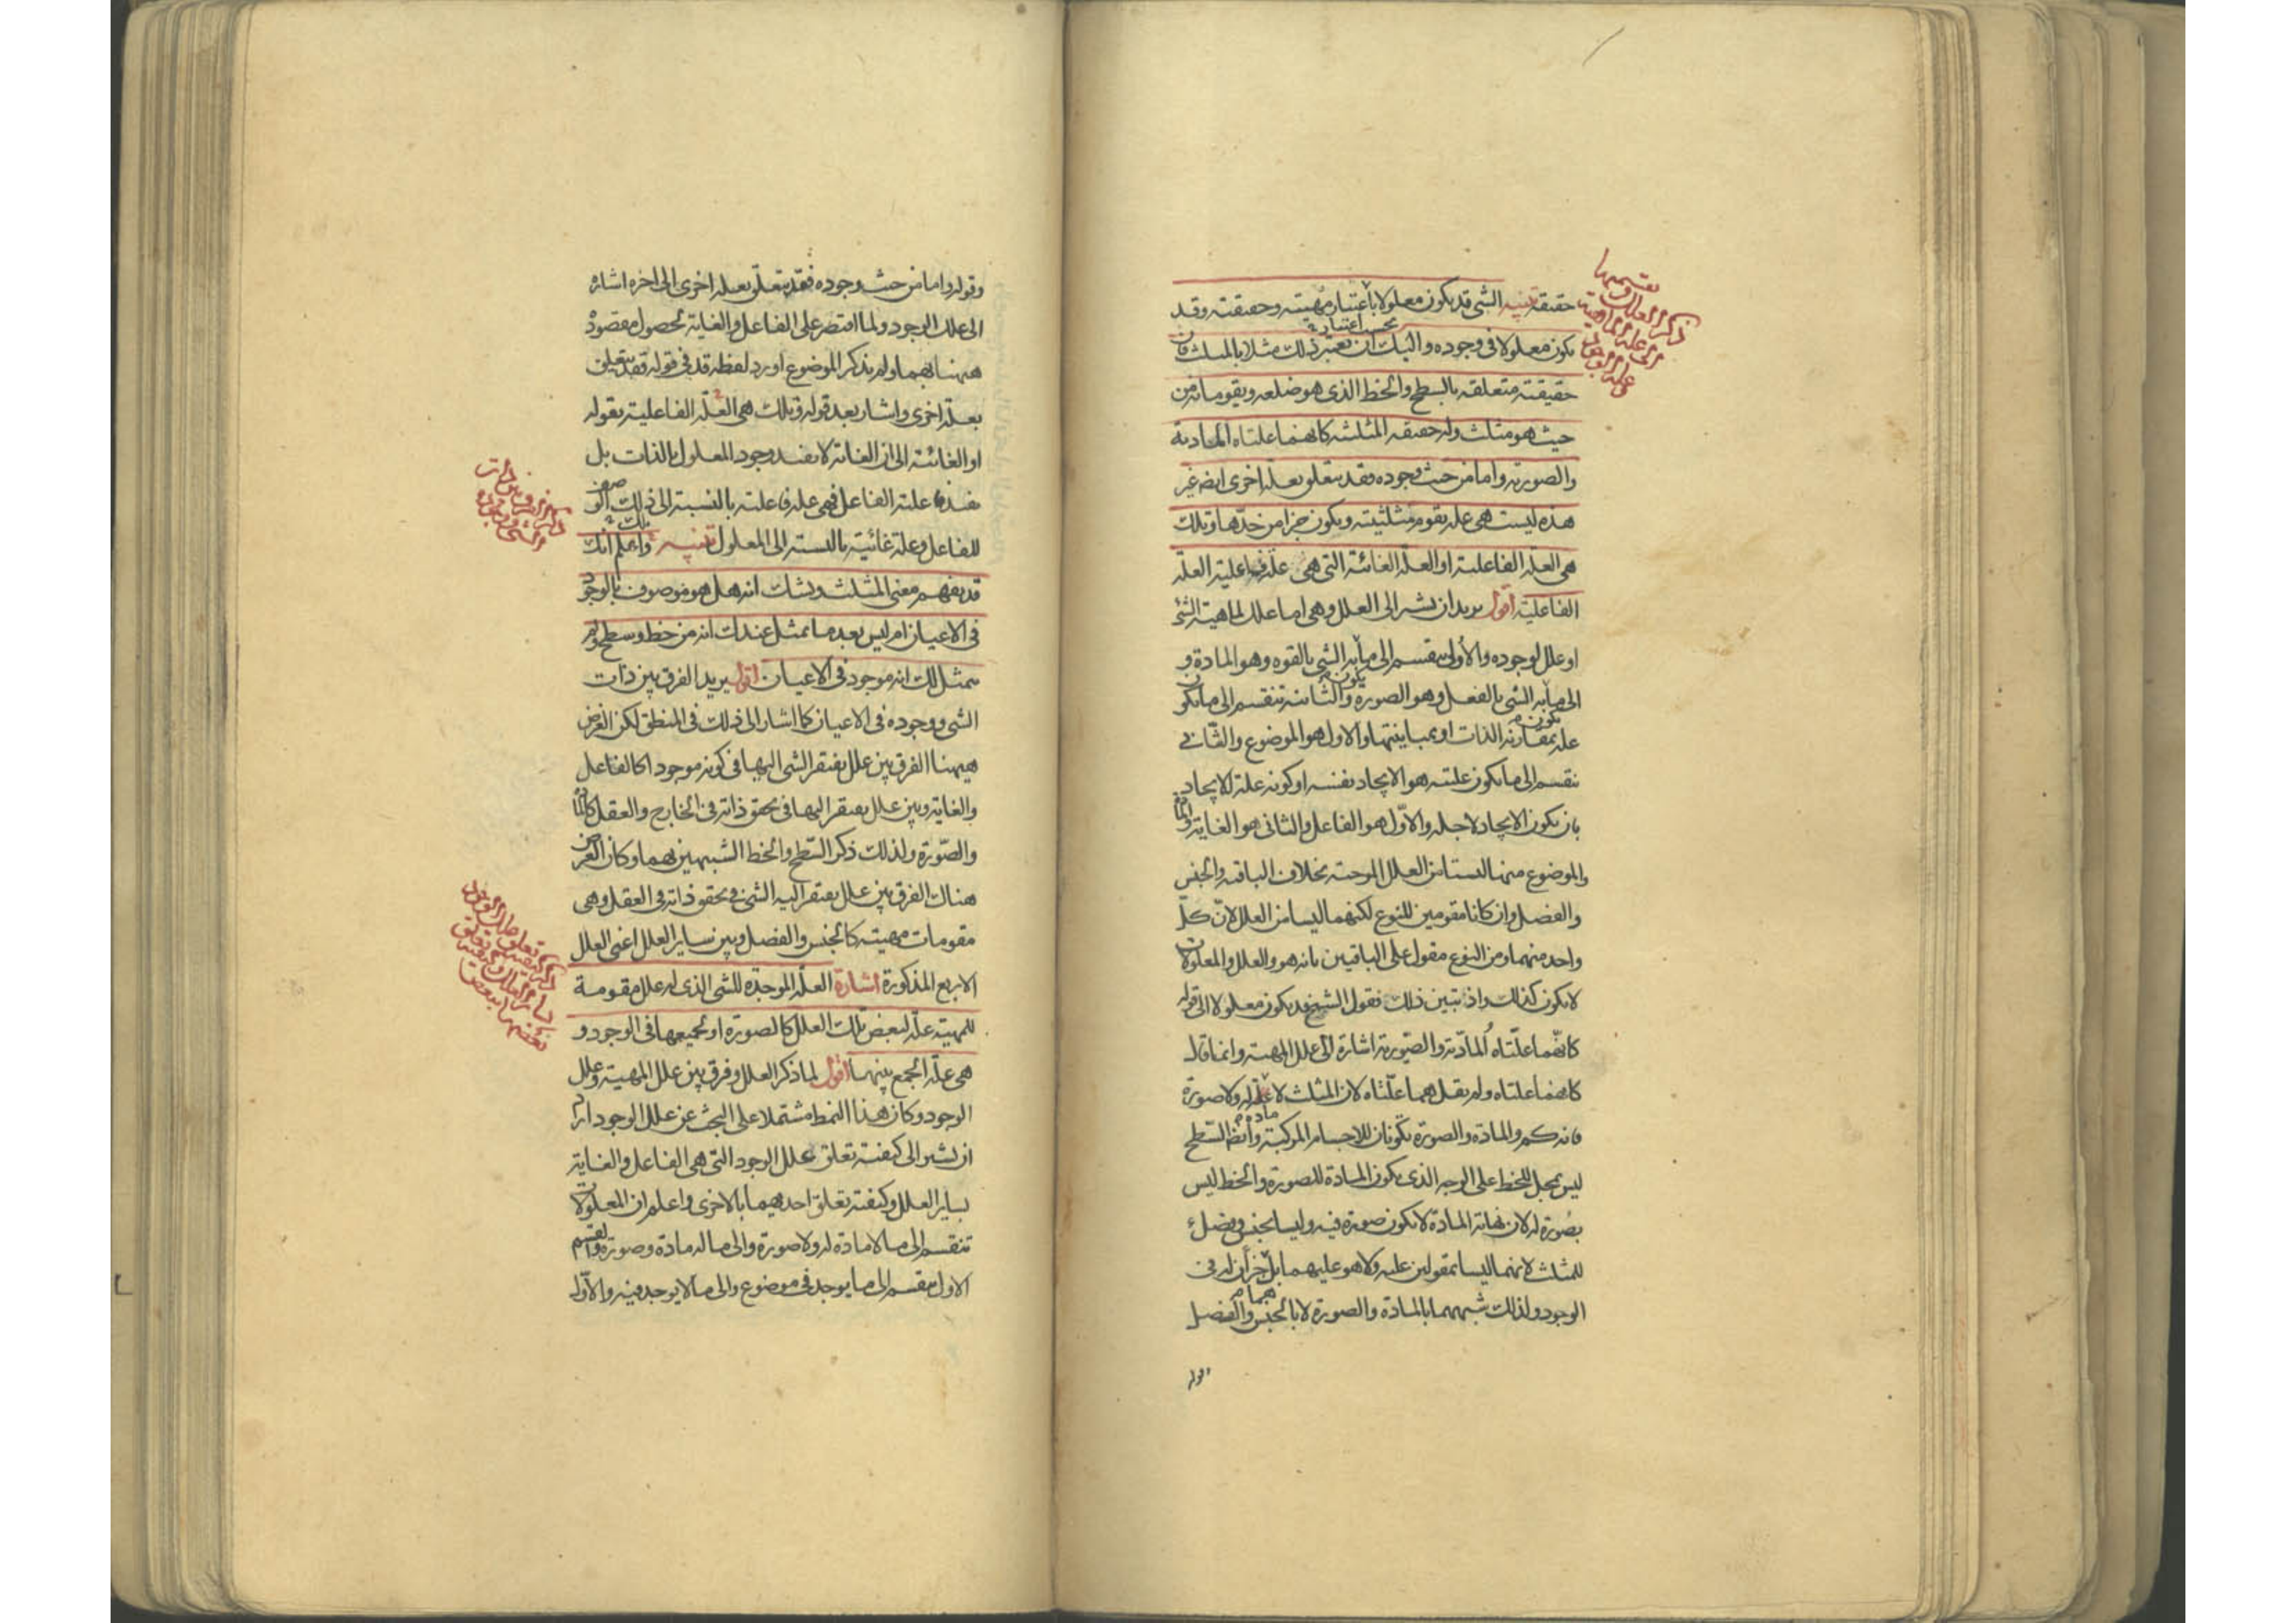 حقيقة تنبيه الشى قد يكون معلولا باعتبار مهيته وحقيقته وقد
يكون معلولا فى وجوده واليك ان تعتبر ذلك مثلا بالمثلث فان
حقيقته متعلقه بالسطح والخط الذى هو ضلعه ويقومانه من
حيث هو مثلث وله حقيقه المثلثيه كانهما علتاه المادية
والصورية واما من حيث وجوده فقد يتعلق بعلة اخرى ايضا غير
هذه ليست هى علة تقوم مثلثيته ويكون جزا من حدها وتلك
هى العلة الفاعلية او العلة الغائية التى هى علة فاعلية العلة
الفاعلية اقول يريد ان يشير الى العلل وهى اما علل لماهية الشئ
او علل لوجوده والاولى ينقسم الى ما به الشى بالقوه وهو المادة و
الى ما يكون به الشى بالفعل وهو الصورة والثانية تنقسم الى ما يكون
علة بمقارنة الذات او بمباينتها والاول هو الموضوع والثانى
ينقسم الى ما يكون عليته هو الايجاد بنفسه او كونه علة للايجاد
بان يكون الايجاد لاجله والاول هو الفاعل والثانى هو الغاية والمادة
والموضوع منها ليستا من العلل الموجبة بخلاف الباقية والجنس
والفصل وان كانا مقومين للنوع لكنهما ليسا من العلل لان كل
واحد منهما ومن النوع مقول على الباقيين بانه هو والعلل والمعلولات
لا يكون كذلك واذ تبين ذلك فقول الشيخ قد يكون معلولا الى قوله
كانهما علتاه المادية والصورية اشارة الى علل المهية وانما قال
كانهما علتاه ولم يقل هما علتاه لان المثلث لا مادة له ولا صورة
فانه كم والمادة والصورة تكونان للاجسام المركبة وايضا السطح
ليس بمحل للخط على الوجه الذى يكون المادة للصورة والخط ليس
بصورة له لان نهاية المادة لا يكون صورة فيه وليسا بجنس وفصل
للمثلث لانهما ليسا بمقولين عليه ولا هو عليهما بل هما جزآن له فى
الوجود ولذلك شبههما بالمادة والصورة لا بالجنس والفصل
قوله
وقوله واما من حيث وجوده فقد يتعلق بعلة اخرى الى اخره اشارة
الى علل الوجود ولما اقتصر على الفاعل والغاية لحصول مقصوده
ههنا بهما ولم يذكر الموضوع اورد لفظه قد فى قوله فقد يتعلق
بعلة اخرى واشار بعد قوله وتلك هى العلة الفاعلية بقوله
او الغائية الى ان الغاية لا يفيد وجود المعلول بالذات بل
يفيد فاعلية الفاعل فهى علة فاعلية بالنسبة الى ذلك الوصف
للفاعل وعلة غائية بالنسبة الى المعلول تنبيه واعلم انك
قد يفهم معنى المثلث ويشك انه هل هو موصوف بالوجود
فى الاعيان ام ليس بعد ما تمثل عندك انه من خط وسطح ولم
يتمثل لك انه موجود فى الاعيان اقول يريد الفرق بين ذات
الشى ووجوده فى الاعيان كما اشار الى ذلك فى المنطق لكن الغرض
ههنا الفرق بين علل يفتقر الشى اليها فى كونه موجودا كالفاعل
والغاية وبين علل يفتقر اليها فى تحقق ذاته فى الخارج والعقل كالمادة
والصورة ولذلك ذكر السطح والخط الشبيهين بهما وكان الغرض
هناك الفرق بين علل يفتقر اليه الشى فى تحقق ذاته فى العقل وهى
مقومات مهيته كالجنس والفصل وبين ساير العلل اعنى العلل
الاربع المذكورة اشارة العلة الموجدة للشى الذى له علل مقومة
للمهية علة لبعض تلك العلل كالصورة او لجميعها فى الوجود و
هى علة الجمع بينها اقول لما ذكر العلل وفرق بين علل المهية وعلل
الوجود وكان هذا النمط مشتملا على البحث عن علل الوجود اراد
ان يشير الى كيفية تعلق علل الوجود التى هى الفاعل والغاية
بساير العلل وكيفية تعلق احديهما بالاخرى واعلم ان المعلولات
تنقسم الى ما لا مادة له ولا صورة والى ما له مادة وصورة والقسم
الاول ينقسم الى ما يوجد فى موضوع والى ما لا يوجد فيه والاول